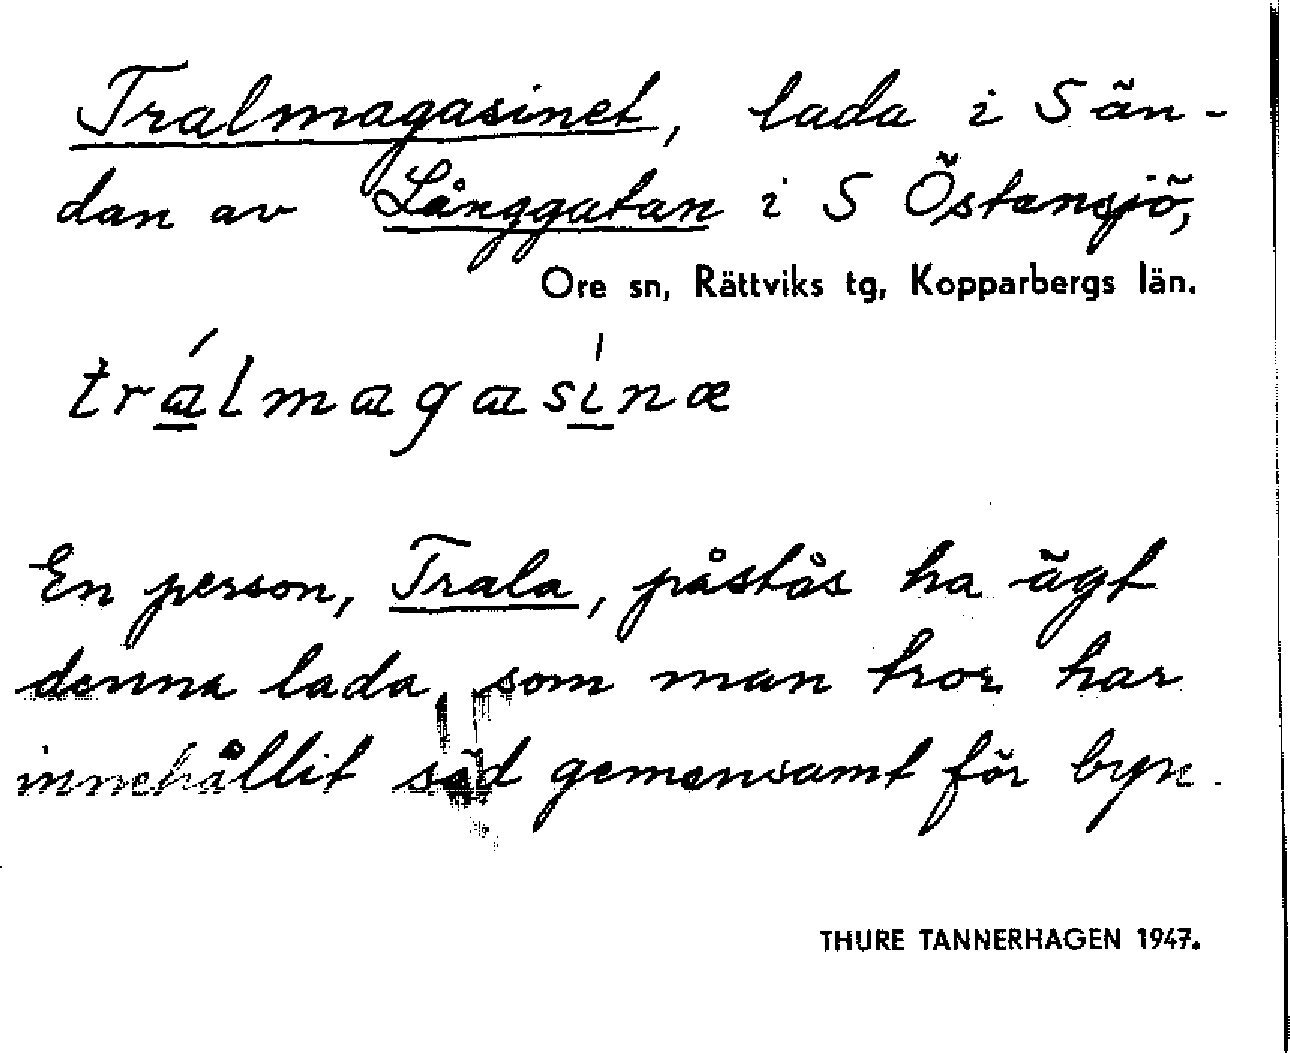 Tralmagasinet, lada i S än-
dan av Långgatan i S Östansjö,
Ore sn, Rättviks tg, Kopparbergs län.
trálmagasínæ
En person, Trala, påstås ha ägt
denna lada, som man tror har
innehållit säd gemensamt för byn.
THURE TANNERHAGEN 1947.